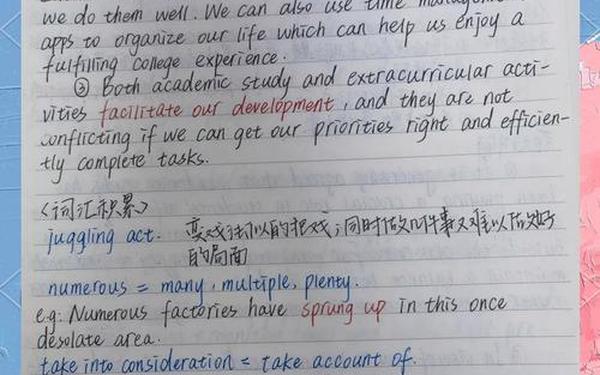 we do them well. We can also use time management
apps to organize our life which can help us enjoy a
fulfilling college experience.
③ Both academic study and extracurricular acti-
vities facilitate our development, and they are not
conflicting if we can get our priorities right and efficien-
tly complete tasks.
<词汇积累>
juggling act. 变戏法似的把戏；同时做几件事又难以做好
的局面
numerous = many, multiple, plenty.
e.g: Numerous factories have sprung up in this once
desolate area.
take into consideration = take account of.